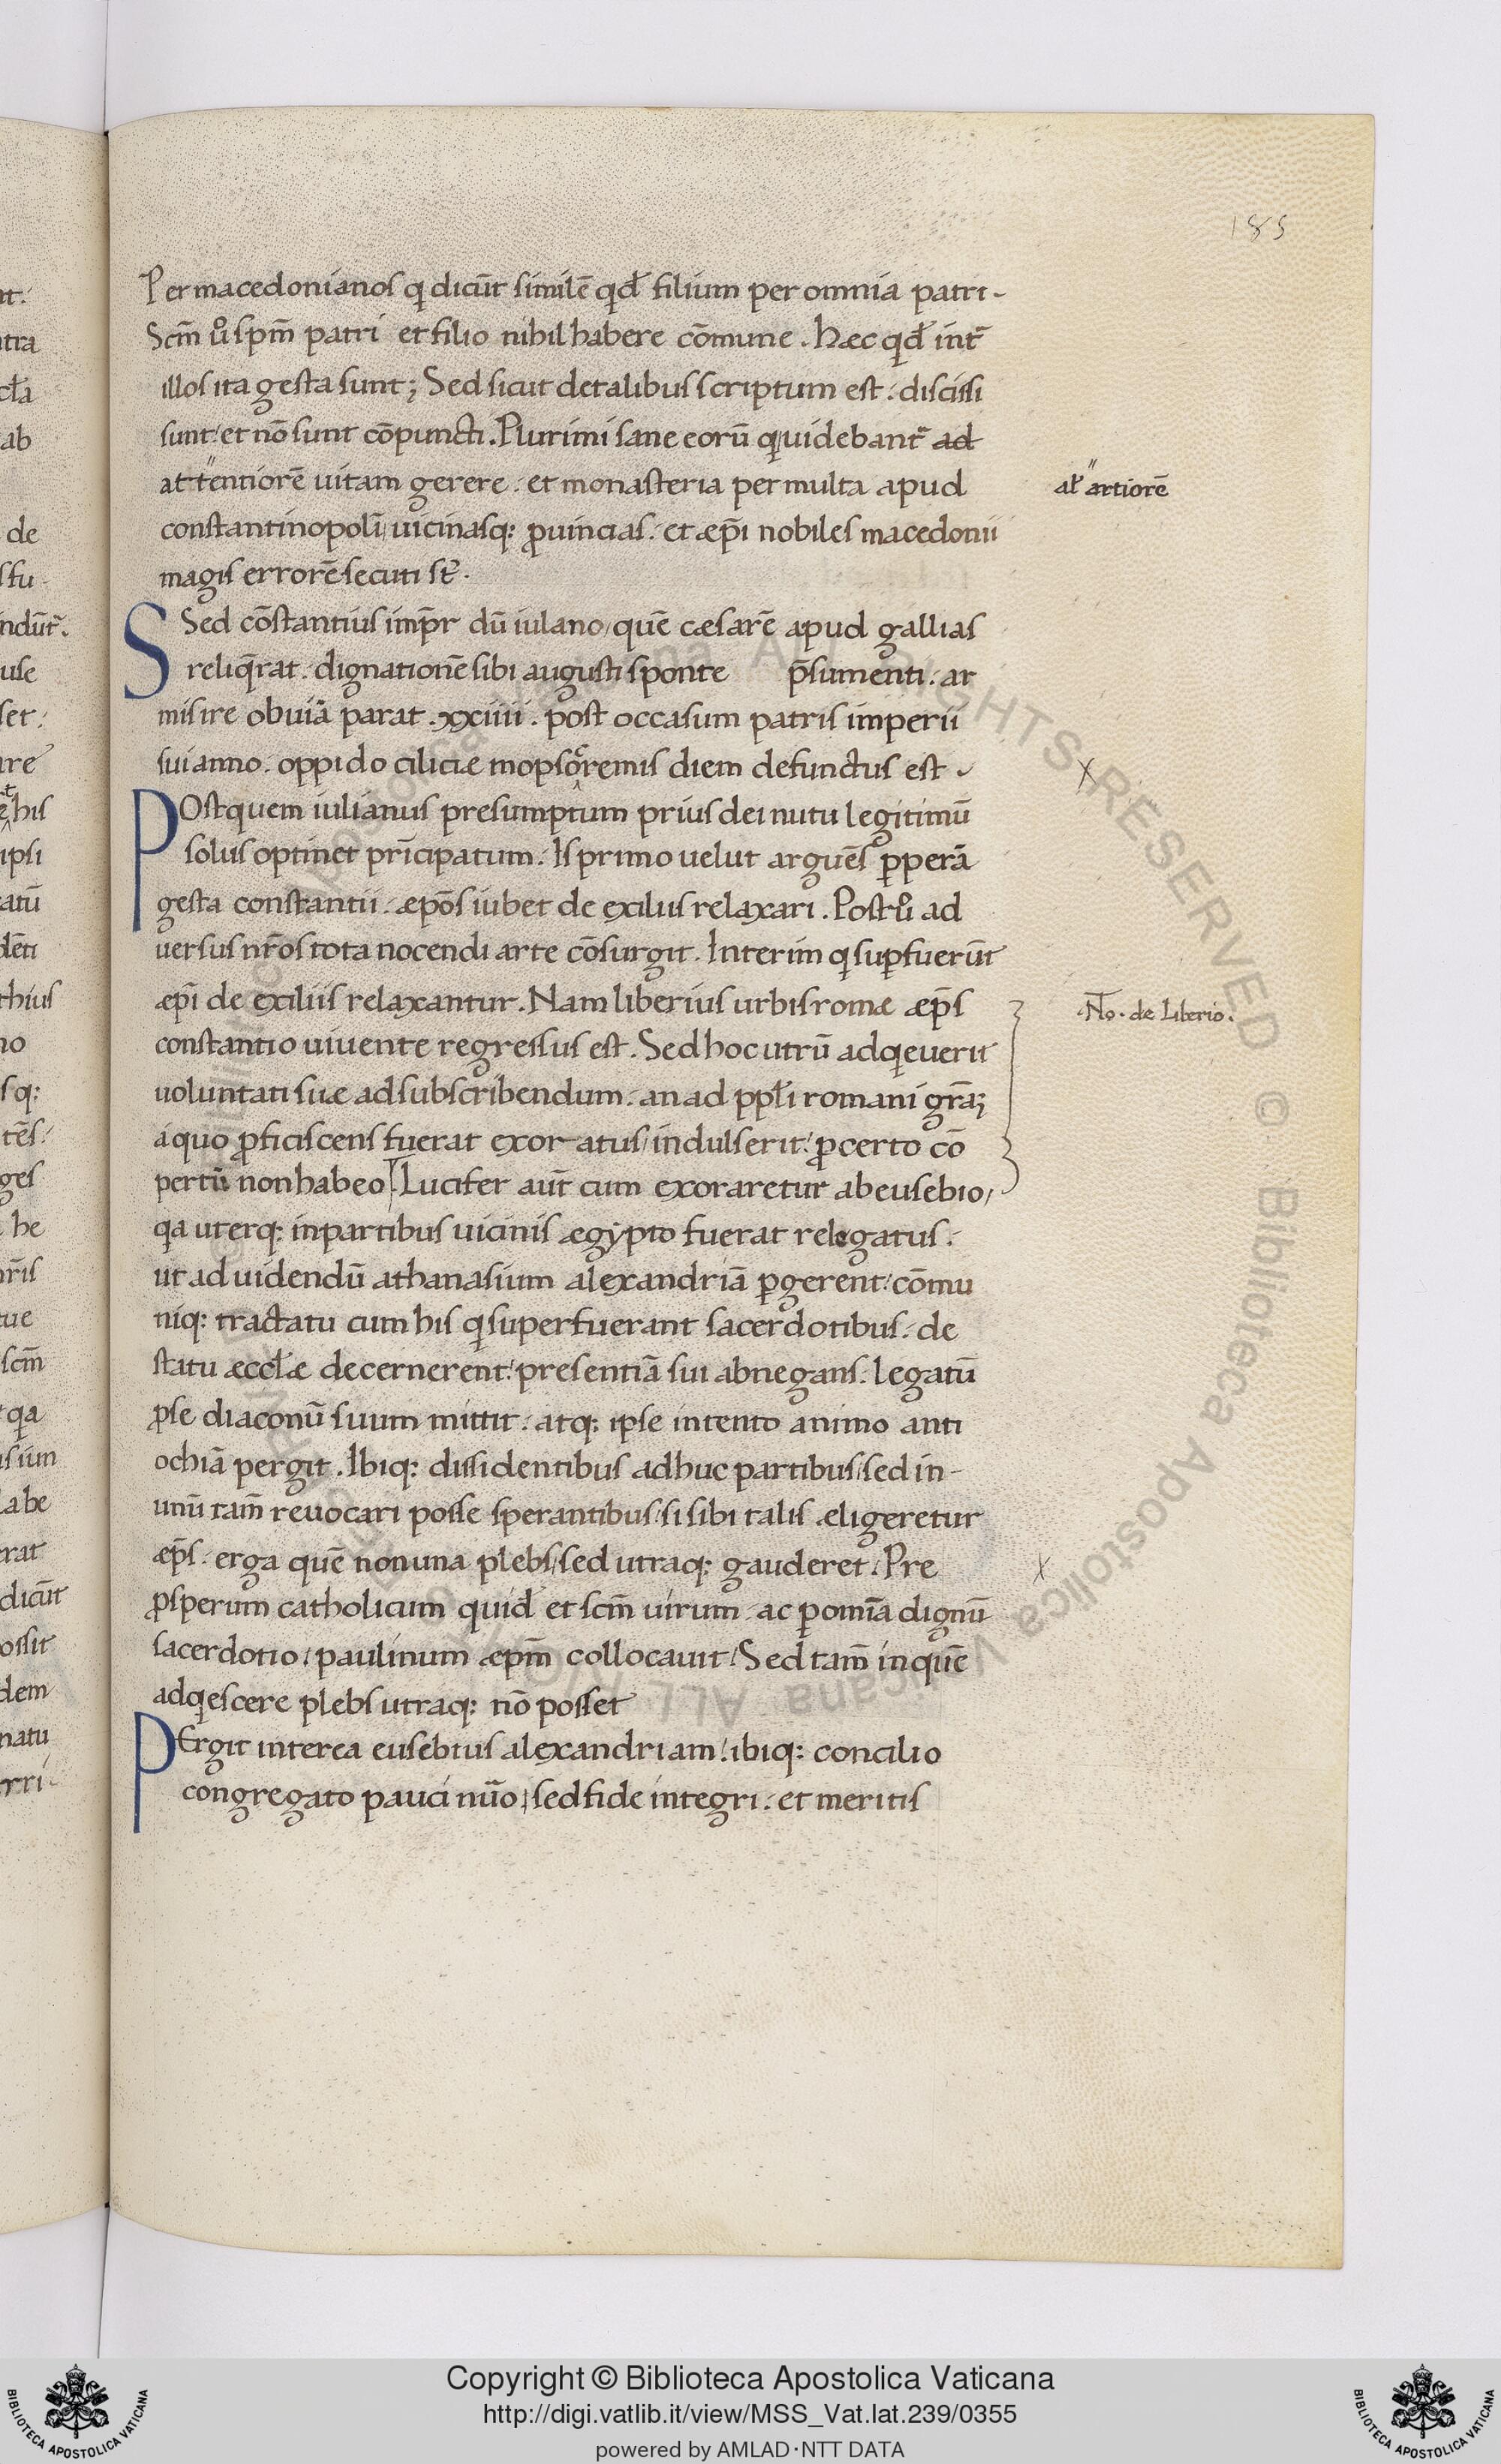 185
Per macedonianos q dicūt similē qd̄ filium per omnia patri-
Scm̄ ů spm̄ patri et filio nihil habere cōmune. Hæc qd̄ int̄
illos ita gesta sunt; Sed sicut de talibus scriptum est. discissi
sunt et nō sunt cōpuncti. Plurimi sane eorū q uidebant̄ ad
attentiorē uitam gerere. et monasteria permulta apud
al̄ artiorē
constantinopolī uicinasq: ꝓuincias. et æpī nobiles macedonii
magis errorē secuti st̄.
Sed cōstantius imp̄r dū iulano, quē cæsarē apud gallias
reliq̄rat. dignationē sibi augusti sponte p̄sumenti. ar
mis ire obuiā parat. xxiiii. post occasum patris imperii
sui anno. oppido ciliciæ mopsocremis diem defunctus est.
x
Post quem iulianus presumptum prius dei nutu legitimū
solus optinet prīcipatum. Is primo uelut arguēs ꝑperā
gesta constantii. æpōs iubet de exiliis relaxari. Post ů ad
uersus nr̄os tota nocendi arte cōsurgit. Interim q supfuerūt
æpī de exiliis relaxantur. Nam liberius urbis romæ æp̄s
No. de Liberio.
constantio uiuente regressus est. Sed hoc utrū adqeuerit
uoluntati suæ ad subscribendum. an ad ppl̄i romani grā;
a quo ꝓficiscens fuerat exoratus indulserit. ꝓ certo cō
pertū non habeo. Lucifer aūt cum exoraretur ab eusebio,
qa uterq: in partibus uicinis ægypto fuerat relegatus.
ut ad uidendū athanasium alexandriā ꝑgerent. cōmu
niq: tractatu cum his q superfuerant sacerdotibus. de
statu æccl̄æ decernerent. presentiā sui abnegans. legatū
ꝓ se diaconū suum mittit. atq: ipse intento animo anti
ochiā pergit. Ibiq: dissidentibus adhuc partibus, sed in-
unū tam̄ reuocari posse sperantibus, si sibi talis æligeretur
æp̄s. erga quē non una plebs, sed utraq: gauderet. Pre
x
ꝓsperum catholicum quid̄ et scm̄ uirum. ac ꝑ omīa dignū
sacerdotio, paulinum æpm̄ collocauit. Sed tam̄ in quē
adqescere plebs utraq: nō posset
Pergit interea eusebius alexandriam. ibiq: concilio
congregato pauci nūo, sed fide integri. et meritis
Copyright © Biblioteca Apostolica Vaticana
http://digi.vatlib.it/view/MSS_Vat.lat.239/0355
powered by AMLAD·NTT DATA